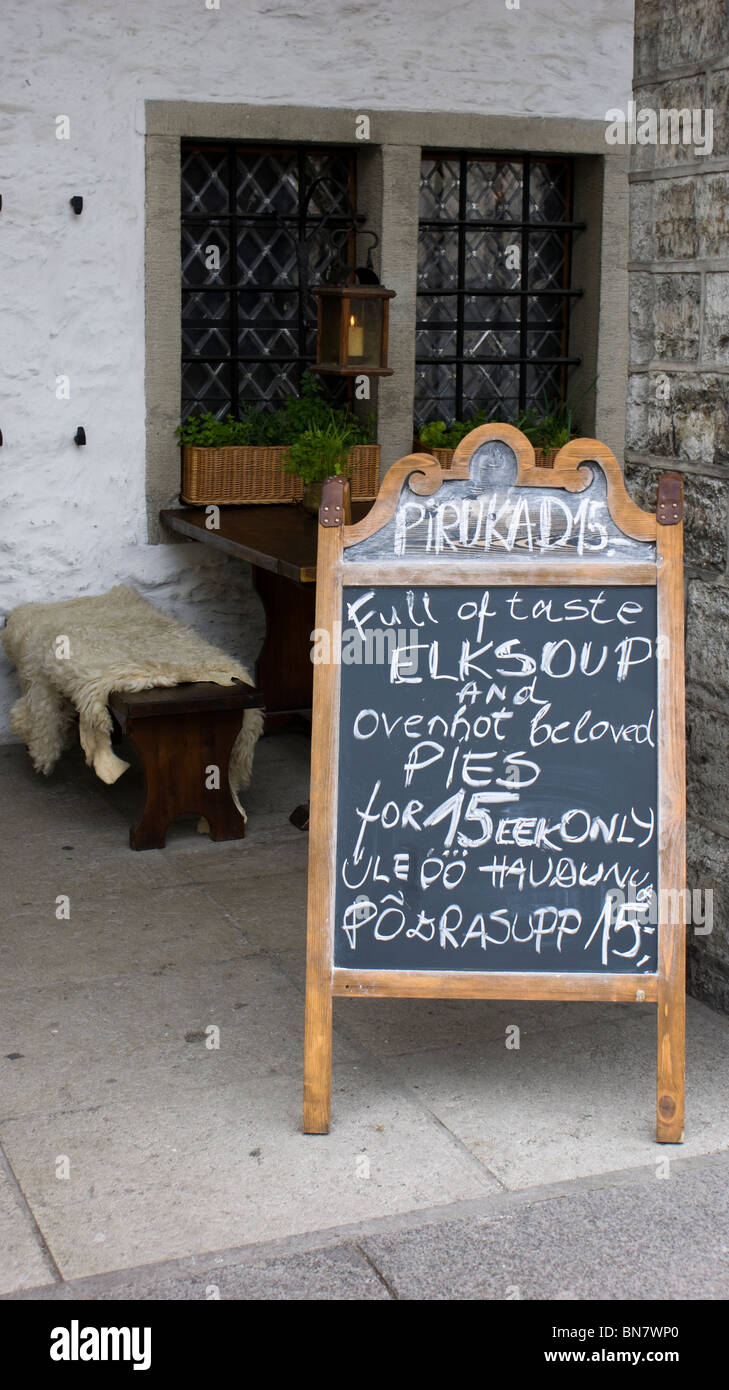 PIRUKAD 15.
Full of taste
ELKSOUP
AND
ovenhot beloved
PIES
for 15 EEK ONLY
ÜLEÖÖ HAUDUNUD
PÕDRASUPP 15.-
alamy
Image ID: BN7WP0
www.alamy.com